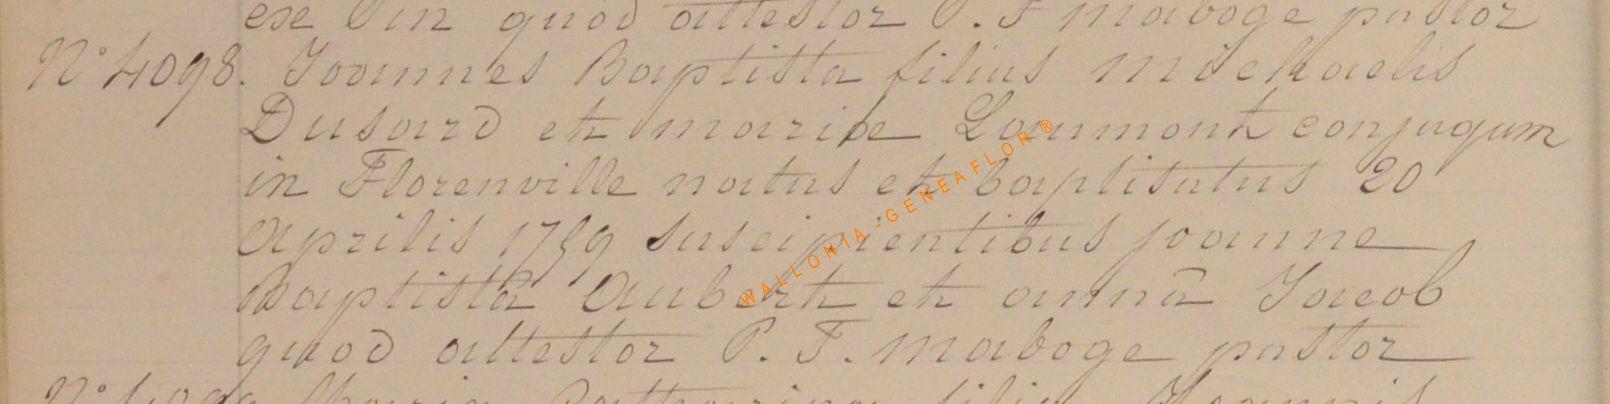 exe Pin quod attestor P. F maboge pastor
N° 4098. Joannes Baptista filius michaelis
Dusard et mariæ Laumont conjugum
in Florenville natus et baptisatus 20
aprilis 1759 suscipientibus joanne
Baptistâ Aubert et annâ Jacob
quod attestor P. F. maboge pastor
N° 4099 Maria Catharina filia Joannis
WALLONIA-GENEAFLOR®